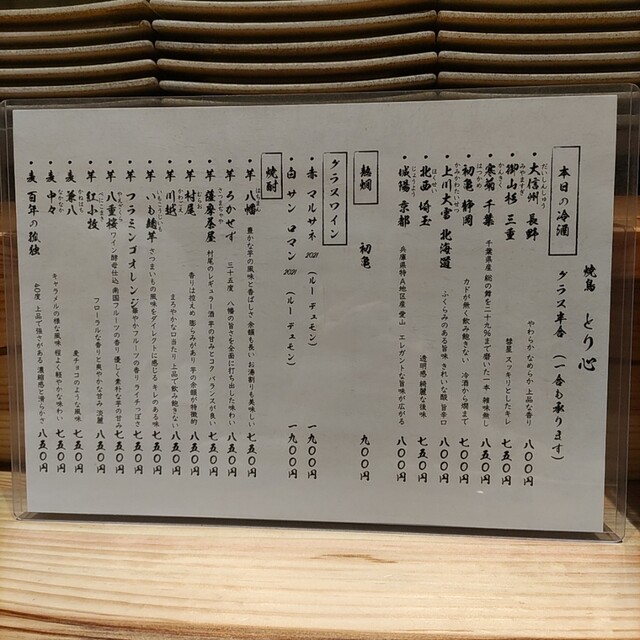 焼鳥 とり心
本日の冷酒 グラス半合 (一合も承ります)
だいしんしゅう
・大信州 長野 やわらか なめらか 上品な香り 八〇〇円
みやますぎ
・御山杉 三重 彗星 スッキリとしたキレ 七五〇円
かんきく
・寒菊 千葉 千葉県産 総の舞を二十九%まで磨いた一本 雑味無し 八五〇円
はつかめ
・初亀 静岡 カドが無く飲み飽きない 冷酒から燗まで 七〇〇円
かみかわたいせつ
・上川大雪 北海道 ふくらみのある旨味 きれいな酸 旨辛口 七五〇円
・北西 埼玉 透明感 綺麗な後味 七五〇円
じょうよう
・城陽 京都 兵庫県特A地区産愛山 エレガントな旨味が広がる 八〇〇円
熱燗 初亀 九〇〇円
グラスワイン
・赤 マルサネ 2021 (ルー デュモン) 一九〇〇円
・白 サン ロマン 2021 (ルー デュモン) 一九〇〇円
焼酎
はちまん
・芋 八幡 豊かな芋の風味と香ばしさ 余韻も長い お湯割りも美味しい 七五〇円
・芋 ろかせず 三十五度 八幡の旨さを全面に打ち出した味わい 八五〇円
さつまちゃや
・芋 薩摩茶屋 村尾のレギュラー酒 芋の甘みとコク バランスが良い 七五〇円
むらお
・芋 村尾 香りは控えめ 膨らみがあり 芋の余韻が特徴的 八五〇円
かわごえ
・芋 川越 まろやかな口当たり 上品で飲み飽きない 八〇〇円
・芋 いも麹芋 さつまいもの風味をダイレクトに感じる キレのある味 七五〇円
・芋 フラミンゴオレンジ 華やかフルーツの香り ライチっぽさ 八五〇円
やえざくら
・芋 八重桜 ワイン酵母仕込 南国フルーツの香り 優しく素朴な芋の甘み 七五〇円
・芋 紅小牧 フローラルな香りと爽やかな甘み 淡麗 八〇〇円
かねはち
・麦 兼八 麦チョコのような風味 七五〇円
なかなか
・麦 中々 キャラメルの様な風味 程よく軽やかな味わい 七五〇円
・麦 百年の孤独 40度 上品で強さがある 濃醇感と滑らかさ 八五〇円